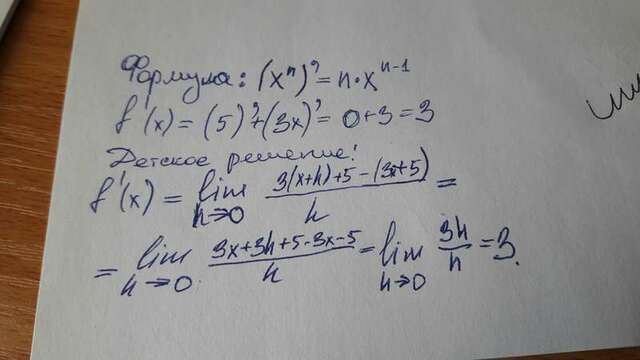 Формула: (xⁿ)' = n·xⁿ⁻¹
f'(x) = (5)'+(3x)' = 0+3=3
Детское решение:
f'(x) = lim h→0 (3(x+h)+5-(3x+5))/h =
= lim h→0 (3x+3h+5-3x-5)/h = lim h→0 3h/h = 3.